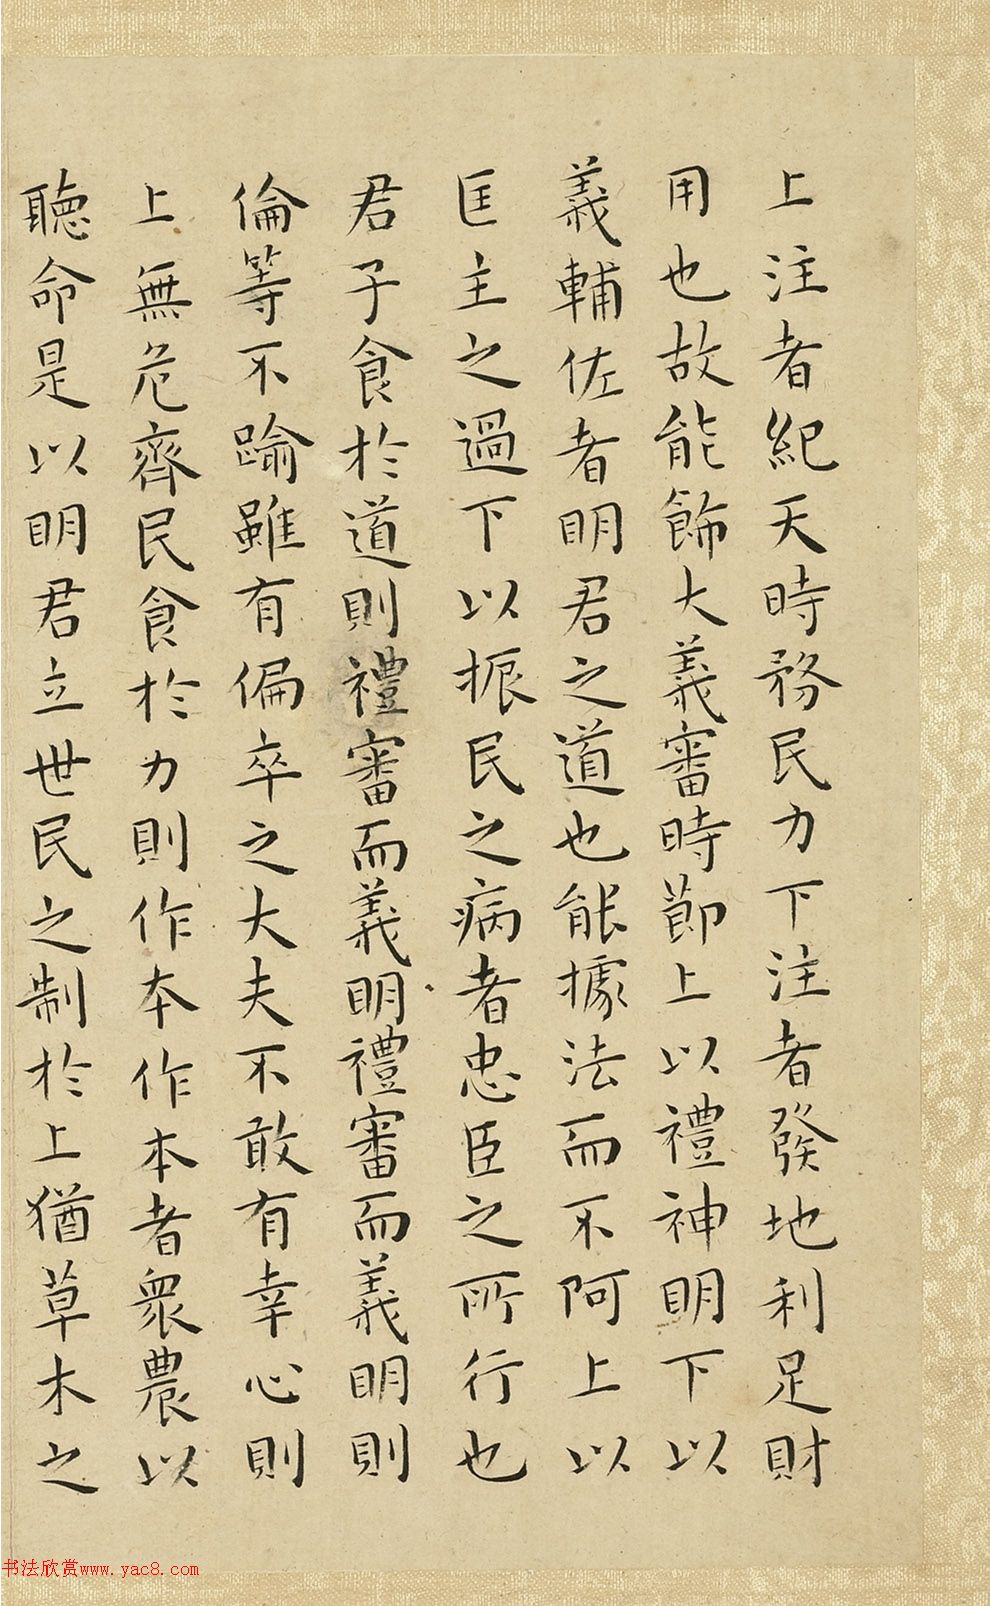 上注者紀天時務民力下注者發地利足財
用也故能飾大義審時節上以禮神明下以
義輔佐者明君之道也能據法而不阿上以
匡主之過下以振民之病者忠臣之所行也
君子食於道則禮審而義明禮審而義明則
倫等不踰雖有偏卒之大夫不敢有幸心則
上無危齊民食於力則作本作本者衆農以
聽命是以明君立世民之制於上猶草木之
书法欣赏www.yac8.com